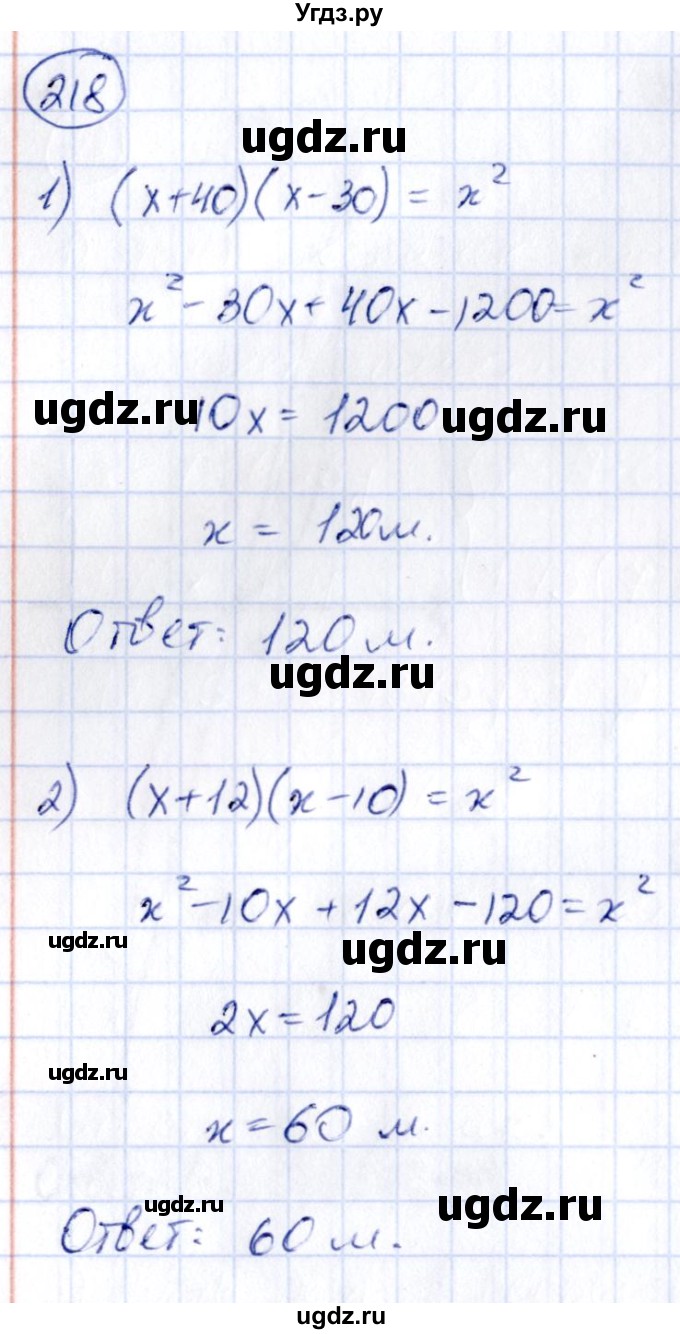 Угдз.ру
218
ugdz.ru
1) (x+40)(x-30) = x²
x² - 30x + 40x - 1200 = x²
ugdz.ru 10x = 1200 ugdz.ru
x = 120 м.
Ответ: 120 м.
ugdz.ru
2) (x+12)(x-10) = x²
x² - 10x + 12x - 120 = x²
ugdz.ru ugdz.ru
2x = 120
ugdz.ru
x = 60 м.
ugdz.ru ugdz.ru
Ответ: 60 м.
ugdz.ru